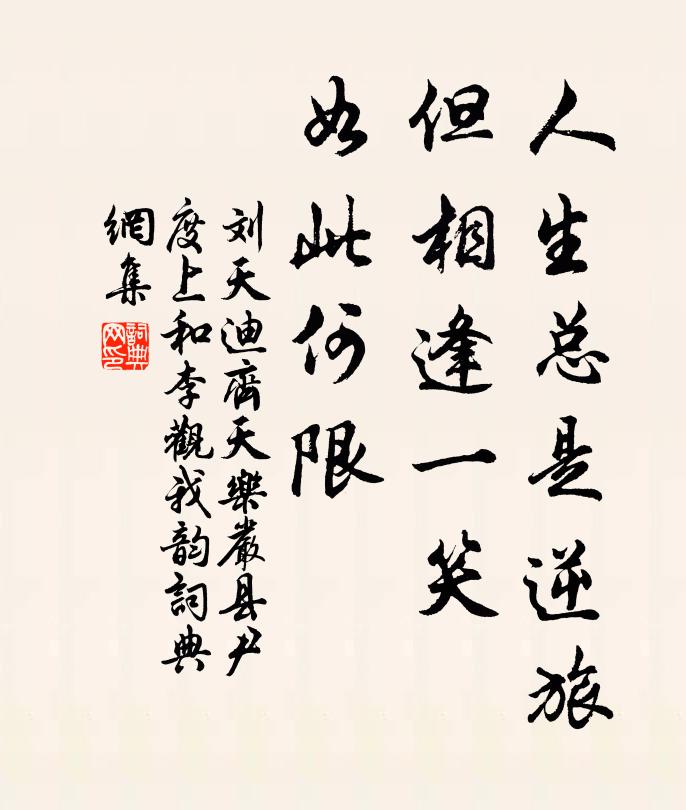 人生总是逆旅
但相逢一笑
如此何限
刘天迪齊天樂嚴县尹
度上和李觀我韵詞典
網集
詞典
网印